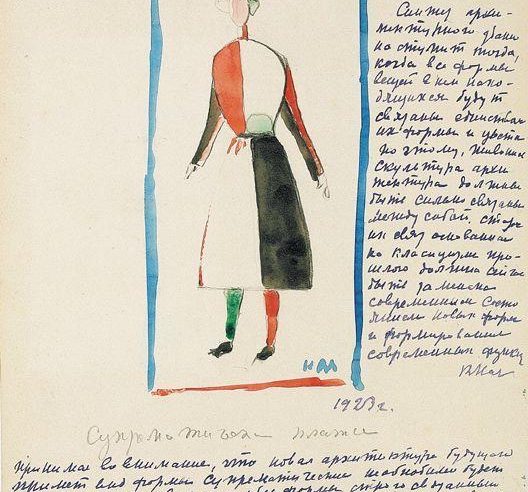 Синтез архи-
тектурного здания
наступит тогда,
когда все формы
вещей в нем нахо-
дящихся будут
связаны единством
их формы и цвета
поэтому, живопись
скульптура архи
тектура должны
быть сильно связаны
между собой, 
их связь основанная
на классицизме про-
шлого должна
быть заменена
современным состо
янием новых форм
и формирования
современных функц
КМал
КМ
1923 г.
Супрематическ платье
принимая во внимание, что новая архитектура будущего
примет вид формы Супрематической необходимо будет
формы строго связанных